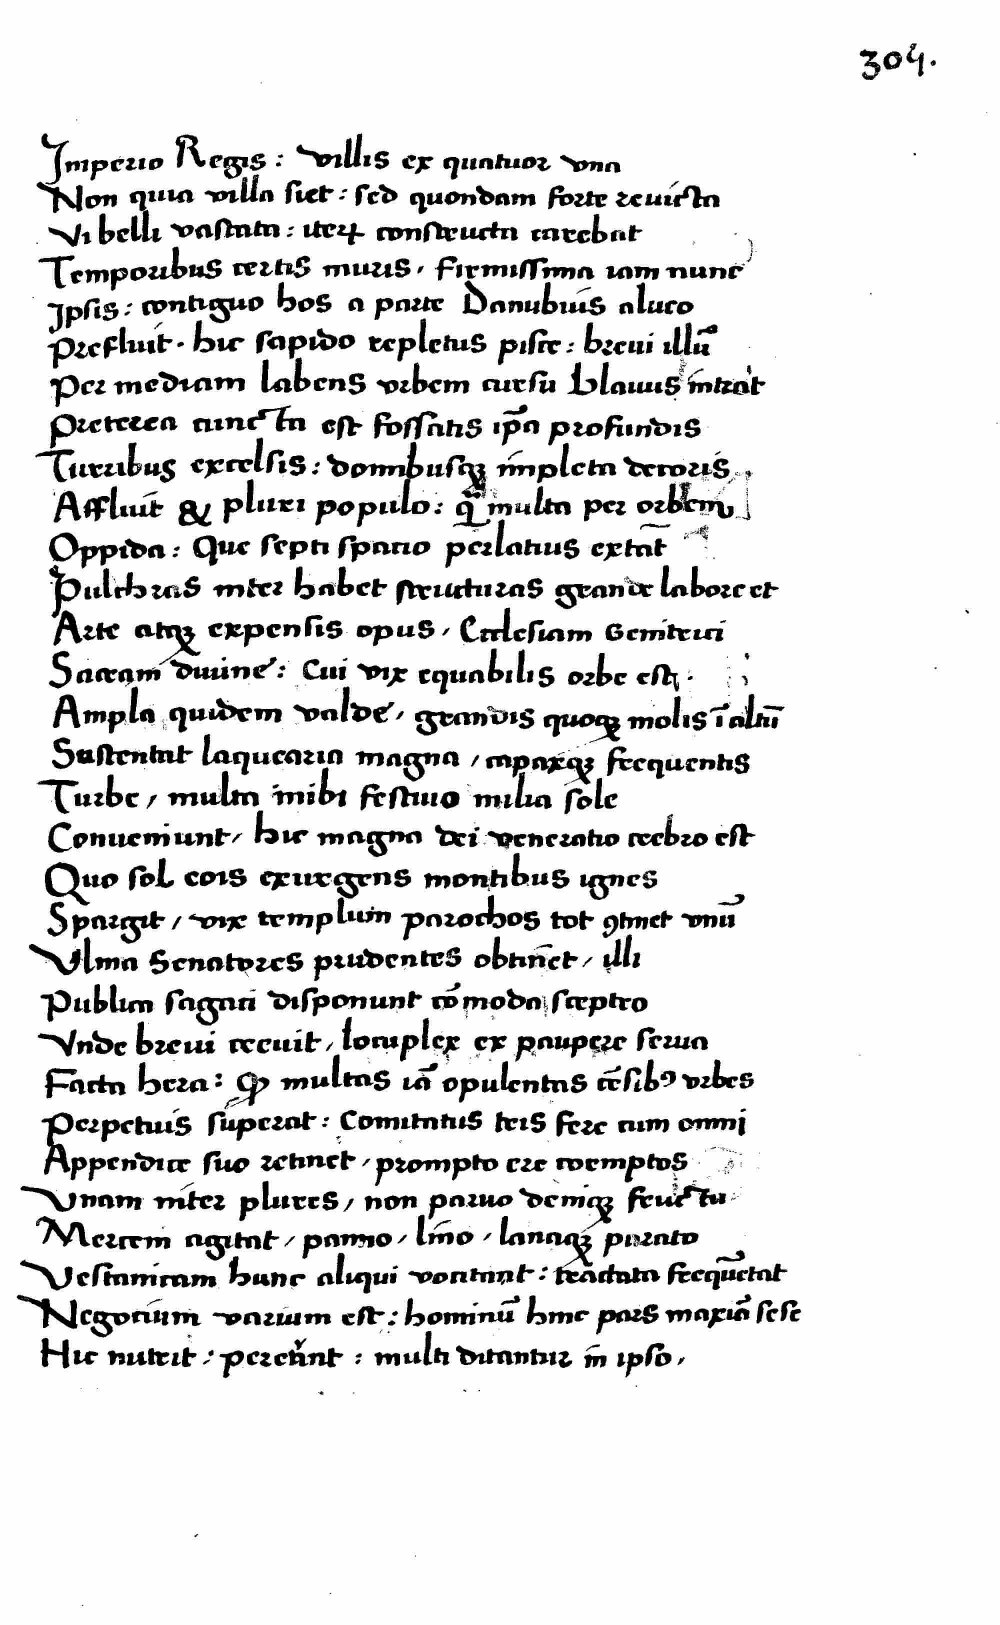 304.
Imperio Regis: villis ex quatuor una
Non quia villa siet: sed quondam forte revicta
Vi belli vastata: iterꝝ constructa carebat
Temporibus certis muris, firmissima iam nunc
Ipsis: contiguo hos a parte Danubius alueo
Prefluit. hic sapido repletus pisce: brevi illū
Per mediam labens urbem cursu Blauus intrat
Preterea cuncta est fossatis ip̄a profundis
Turribus excelsis: domibusqꝫ impleta decoris
Affluit & pluri populo: q̄ multa per orbem
Oppida: Que septi spatio perlatius extāt
Pulchras inter habet structuras grande labore et
Arte atqꝫ expensis opus, Ecclesiam Genitrici
Sacram divine: Cui vix equabilis orbe est.
Ampla quidem valde, grandis quoqꝫ molis ī altū
Sustentat laquearia magna, capaxqꝫ frequentis
Turbe, multa inibi festivo milia sole
Conveniunt, hic magna dei veneratio crebro est
Quo sol eois exurgens montibus ignes
Spargit, vix templum parochos tot ꝯtinet unū
Ulma Senatores prudentes obtinēt, illi
Publica sagaci disponunt cōmoda sceptro
Unde brevi crevit, locuplex ex paupere serva
Facta hera: Qꝫ multas iā opulentas cēsibꝰ urbes
Perpetuis superat: Comitatus tris fere cum omni
Appendice suo retinet, prompto ere coemptos
Unam inter plures, non parvo deniqꝫ fructu
Mercem agitat, panno, lino, lanaqꝫ parato
Vestanicam hunc aliqui vocitant: tractata frequētat
Negotium varium est: hominū hinc pars maxiā sese
Hic nutrit: multi ditantur in ipso,